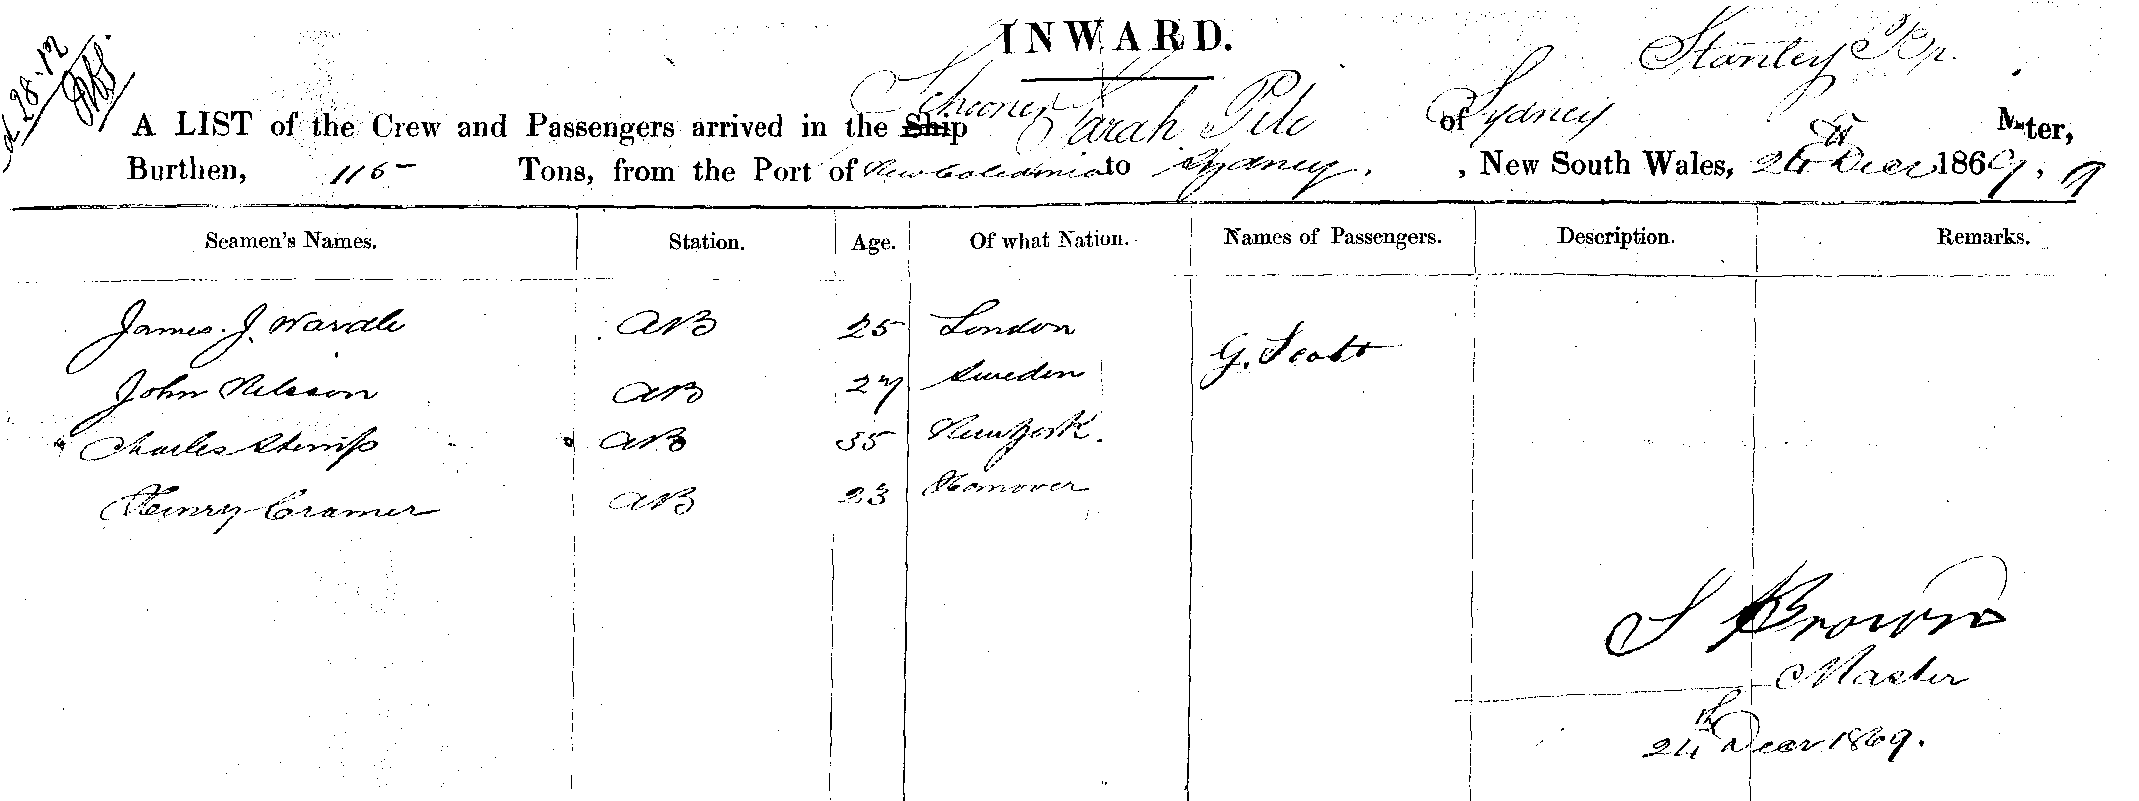 INWARD.
28.12
A LIST of the Crew and Passengers arrived in the Ship Schooner Sarah Pile of Sydney Stanley Master,
Burthen, 115 Tons, from the Port of New Caledonia to Sydney, New South Wales, 24th Decr 1869,
Seamen's Names. Station. Age. Of what Nation. Names of Passengers. Description. Remarks.
James. J. Wardle AB 25 London
G. Scott
John Nilsson AB 27 Sweden
Charles AB 35 New York.
Henry Cramer AB 23 Hanover
S Brown
Master
24th Decr 1869.